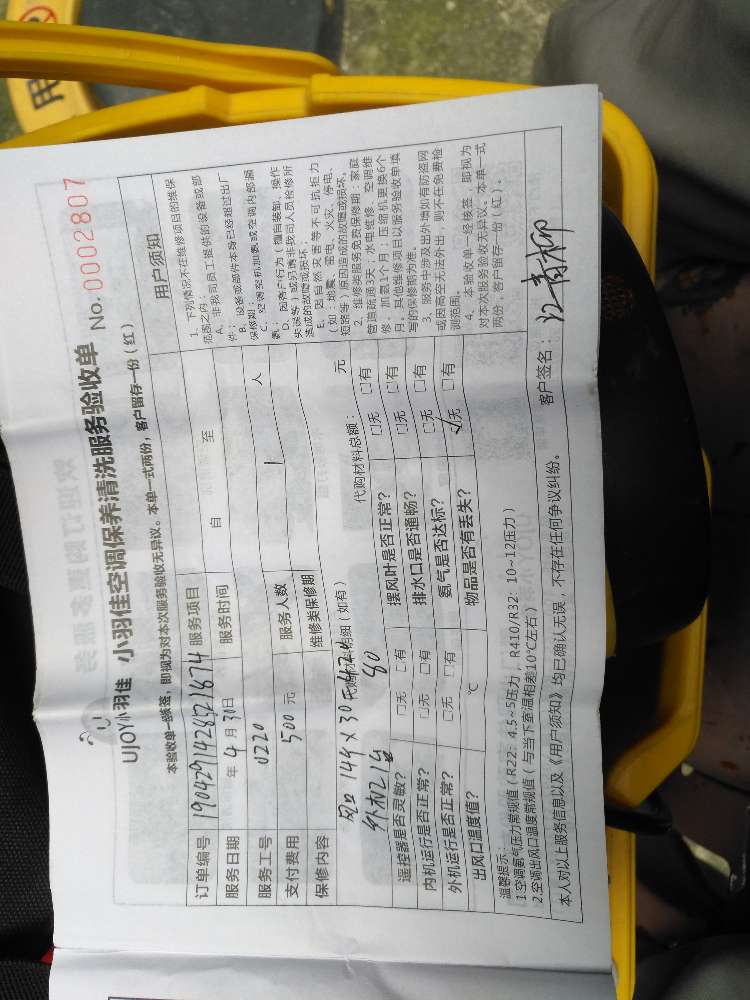 用
UJOY小羽佳 小羽佳空调保养清洗服务验收单 No. 0002807
本验收单一经核签，即视为对本次服务验收无异议。本单一式两份，客户留存一份（红）
订单编号 1904291428521874 服务项目
服务日期 年 4 月 30 日 服务时间 自 至
服务工号 0220
支付费用 500 元 服务人数 1 人
保修内容 维修类保修期
代购材料明细（如有） 代购材料总额： 元
风口 14个×30元=420
外机2台 80
遥控器是否灵敏？ □无 □有 摆风叶是否正常？ □无 □有
内机运行是否正常？ □无 □有 排水口是否通畅？ □无 □有
外机运行是否正常？ □无 □有 氨气是否达标？ □无 □有
出风口温度值？ ℃ 物品是否有丢失？ □无 □有
温馨提示：
1.空调氨气压力常规值（R22：4.5~5压力 R410/R32：10~12压力）
2.空调出风口温度常规值（与当下室温相差10℃左右）
本人对以上服务信息以及《用户须知》均已确认无误，不存在任何争议纠纷。 客户签名：
用户须知
1、下列情况不在维修项目的维保
范围之内：
A、非我司员工提供的设备或部
件；
B、设备或部件本身已经超过出厂
保修期；
C、空调空加氨或空调内部漏
氨；
D、因客户行为（擅自装卸、操作
失误等）或另请非我司人员检修所
造成的故障或损坏；
E、因自然灾害等不可抗拒力
（如：地震、雷电、火灾、停电、
短路等）原因造成的故障或损坏。
2、维修类服务免费保修期：家庭
管道疏通3天；水电维修、空调维
修、加氨1个月；压缩机更换6个
月。其他维修项目以服务验收单填
写的保修期为准。
3、服务中涉及出外墙如有防盗网
或因高空无法外出，则不在免费检
测范围。
4、本验收单一经核签，即视为
对本次服务验收无异议。本单一式
两份，客户留存一份（红）。